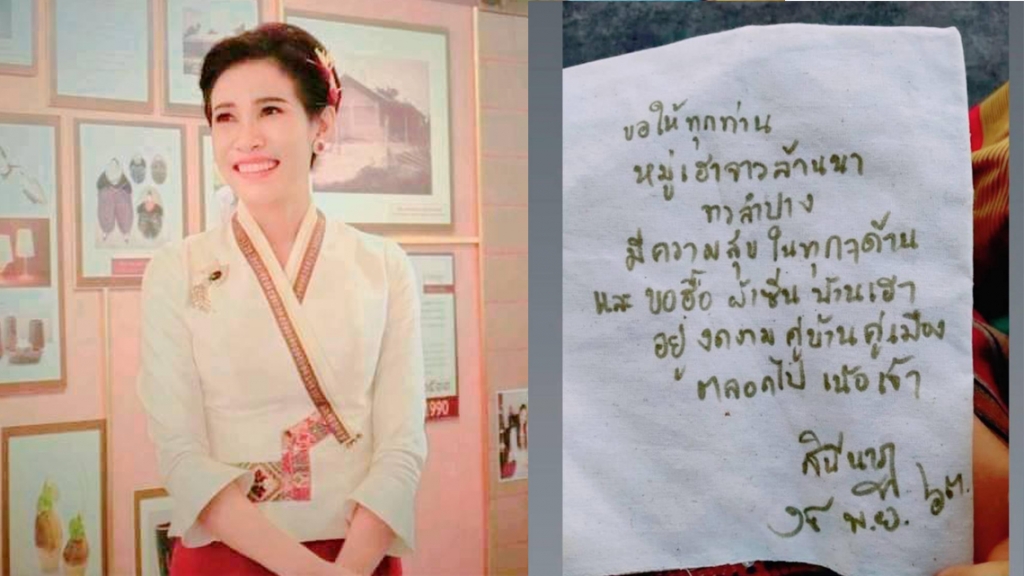 1990
ขอให้ทุกท่าน
หมู่เฮาจาวล้านนา
ชาวลำปาง
มีความสุขในทุกๆด้าน
และ ขอฮื้อ ผ้าซิ่น บ้านเฮา
อยู่ งดงาม คู่บ้าน คู่เมือง
ตลอดไป เน้อเจ้า
สินีนาฏ
พ.ย. ๖๓.